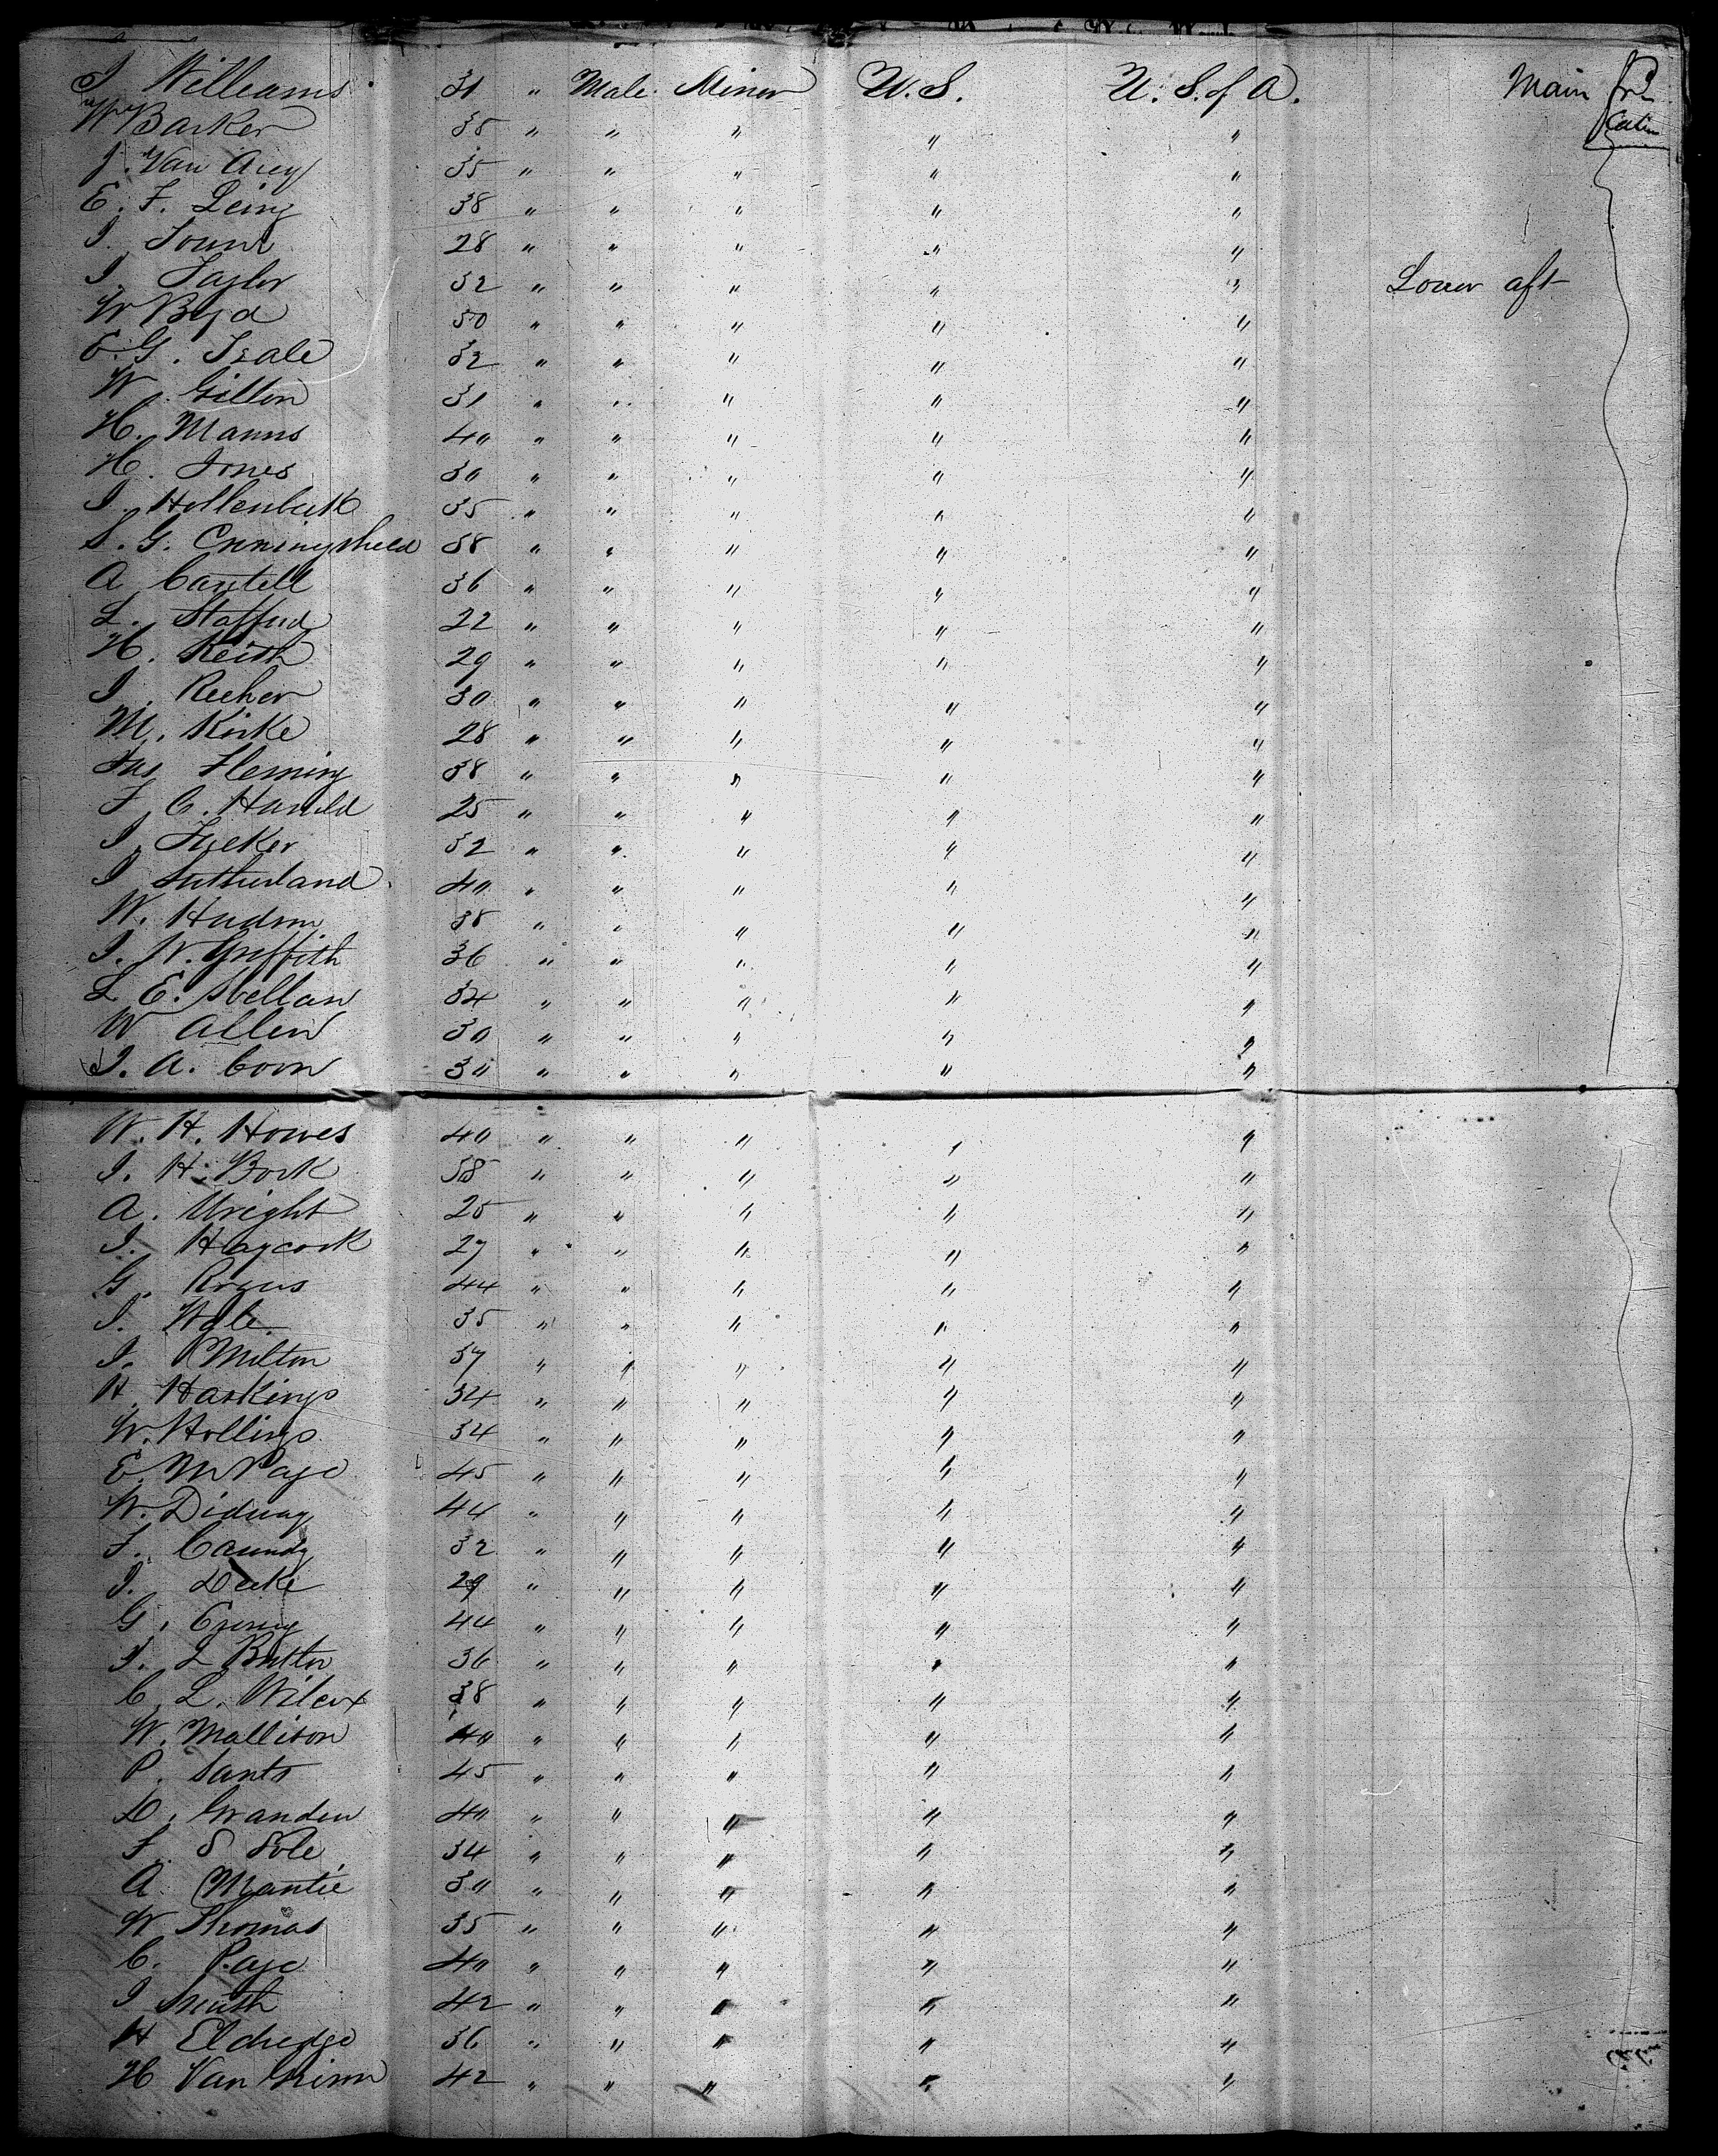 I Williams 31 " Male Miner U. S. U. S. of A. Main
W Barker 35 " " " " " Cabin
J. Van Arey 35 " " " " "
E. F. Leing 38 " " " " "
I. 28 " " " " "
I. Taylor 32 " " " " " Lower aft
W Boyd 50 " " " " "
E. G. Teale 32 " " " " "
W. Gilton 31 " " " " "
H. Manns 40 " " " " "
H. Jones 30 " " " " "
I. Hollenbeck 35 " " " " "
S. G. 38 " " " " "
A Cantell 36 " " " " "
L. Stafford 22 " " " " "
H. Keith 29 " " " " "
I. Reeher 30 " " " " "
M. Kirke 28 " " " " "
Jas Fleming 38 " " " " "
F. C. Harold 25 " " " " "
I. Tucker 32 " " " " "
I Sutherland 40 " " " " "
W. Hudson 38 " " " " "
I. W. Griffith 36 " " " " "
L E. 34 " " " " "
W Allen 30 " " " " "
J. A. Coon 30 " " " " "
W. H. Howes 40 " " " " "
I. H. Bork 58 " " " " "
A. Wright 25 " " " " "
I. Haycock 27 " " " " "
G. Rogers 44 " " " " "
I. Wale 35 " " " " "
I. Milton 37 " " " " "
H. Haskings 34 " " " " "
W. Hollings 34 " " " " "
E. M Page 45 " " " " "
W. Didway 44 " " " " "
F. 32 " " " " "
I. Deeke 29 " " " " "
G. 44 " " " " "
I. L Butler 36 " " " " "
C. L. Wilcox 38 " " " " "
W. Mallison 40 " " " " "
P. Sants 45 " " " " "
D. Granden 40 " " " " "
F. S Sole 34 " " " " "
A. Mantie 30 " " " " "
W Thomas 35 " " " " "
C. Page 40 " " " " "
I Smith 42 " " " " "
H Eldredge 36 " " " " "
H Van 42 " " " " "